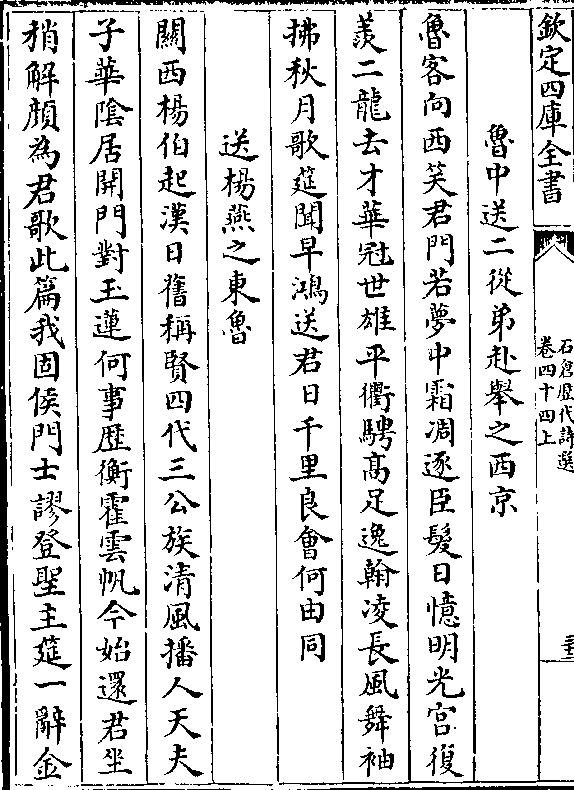 欽定四庫全書
石倉歷代詩選
卷四十四上
魯中送二從弟赴舉之西京
魯客向西笑君門若夢中霜凋逐臣髮日憶明光宮復
羨二龍去才華冠世雄平衢騁髙足逸翰凌長風舞袖
拂秋月歌筵聞早鴻送君日千里良會何由同
送楊燕之東魯
關西楊伯起漢日舊稱賢四代三公族清風播人天夫
子華隂居開門對玉蓮何事歴衡霍雲帆今始還君坐
稍解顔為君歌此篇我固侯門士謬登聖主筵一辭金